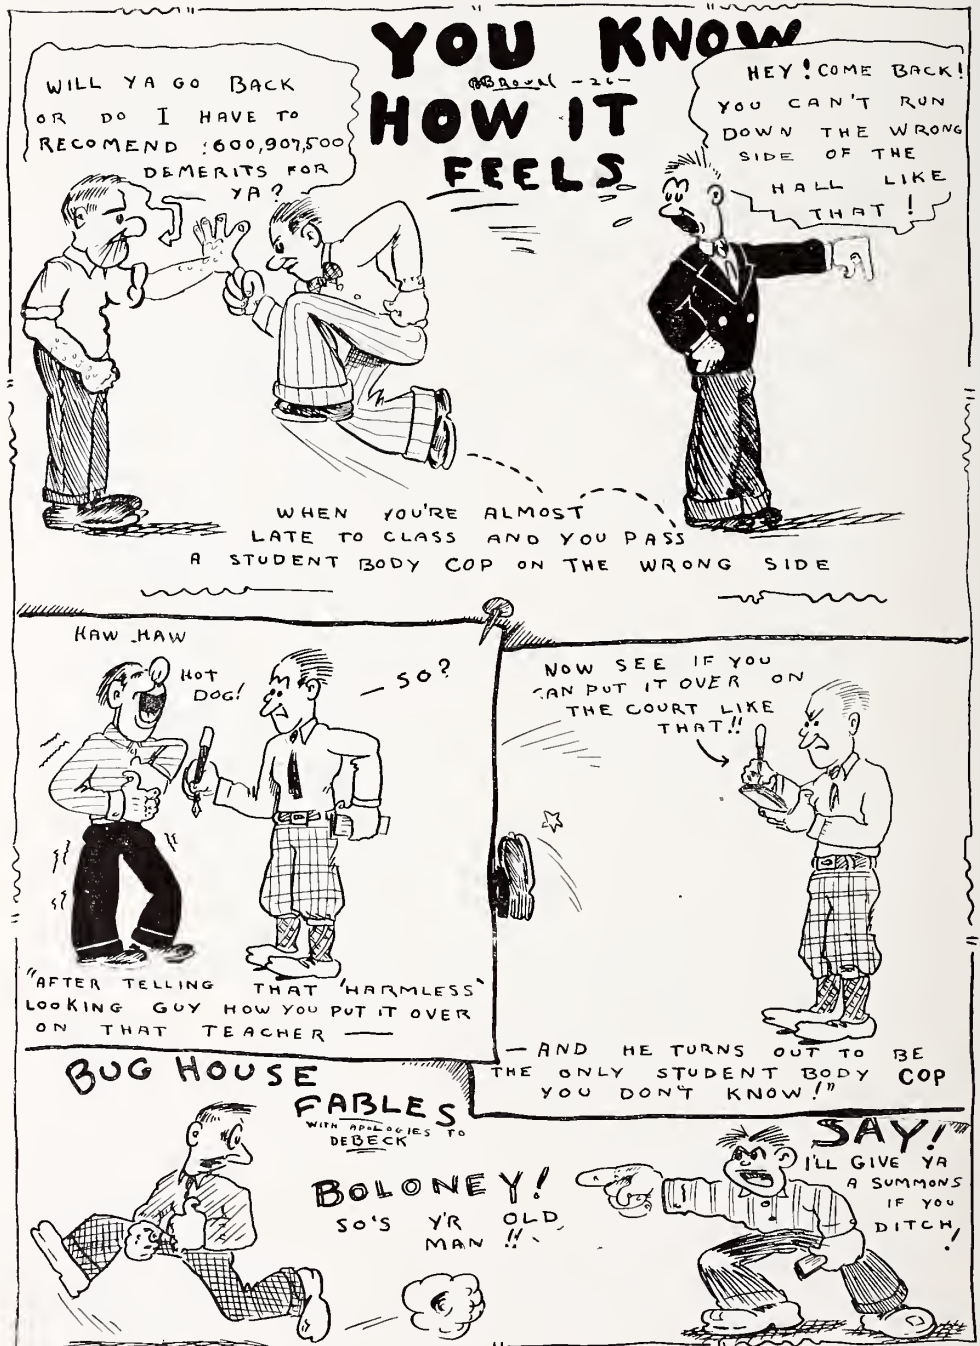 YOU KNOW
HOW IT
FEELS
-26-
WILL YA GO BACK
OR DO I HAVE TO
RECOMEND :600,907,500
DEMERITS FOR
YA?
HEY! COME BACK!
YOU CAN'T RUN
DOWN THE WRONG
SIDE OF THE
HALL LIKE
THAT!
WHEN YOU'RE ALMOST
LATE TO CLASS AND YOU PASS
A STUDENT BODY COP ON THE WRONG SIDE
HAW HAW
HOT
DOG!
— SO?
"AFTER TELLING THAT 'HARMLESS'
LOOKING GUY HOW YOU PUT IT OVER
ON THAT TEACHER —
NOW SEE IF YOU
CAN PUT IT OVER ON
THE COURT LIKE
THAT!!
— AND HE TURNS OUT TO BE
THE ONLY STUDENT BODY COP
YOU DON'T KNOW!"
BUG HOUSE
FABLES
WITH APOLOGIES TO
DEBECK
BOLONEY!
SO'S Y'R OLD
MAN !!
SAY!
I'LL GIVE YA
A SUMMONS
IF YOU
DITCH!